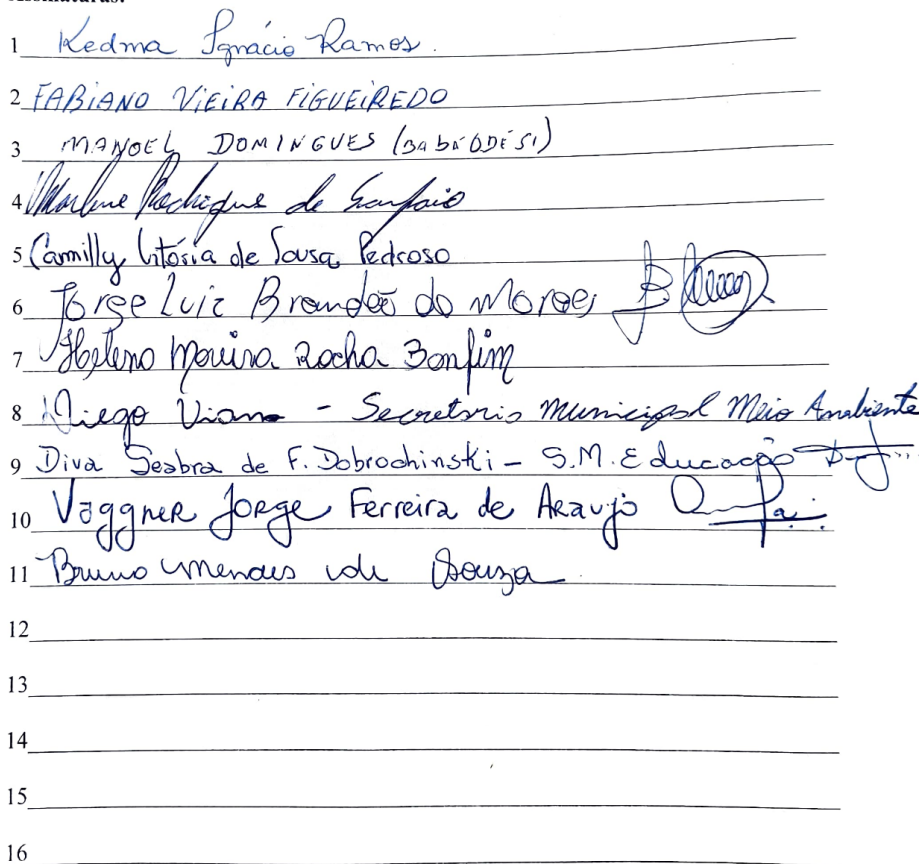 Assinaturas:
1 Kedma Ignácio Ramos.
2 FABIANO VIEIRA FIGUEIREDO
3 MANOEL DOMINGUES (BABÉODÉSI)
4 Marlene Rodrigues de Sampaio
5 Camilly Vitória de Sousa Pedroso
6 Jorge Luiz Brandão do Moraes
7 Moreira Rocha Bonfim
8 Diego Viana - Secretario Municipal Meio Ambiente
9 Diva Seabra de F. Dobrochinski - S.M. Educação
10 Vággner Jorge Ferreira de Araujo
11 Bruno Mendes de Souza
12
13
14
15
16